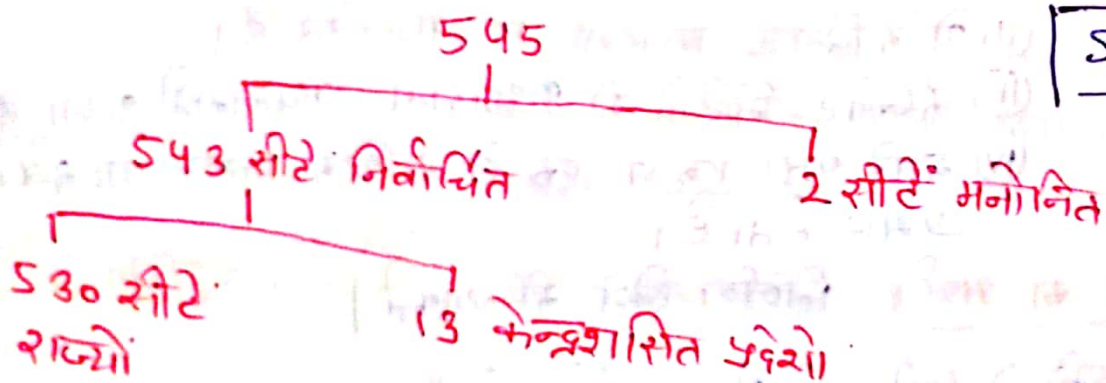 545
543 सीटे निर्वाचित
2 सीटें मनोनित
530 सीटे
राज्यों
13 केन्द्रशासित प्रदेशो